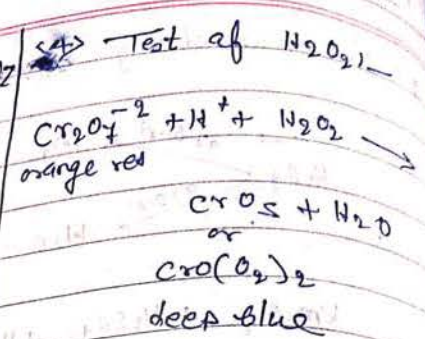 <4> Test of H2O2:-
Cr2O7^-2 + H^+ + H2O2 ⟶
orange red
CrO5 + H2O
or
CrO(O2)2
deep blue